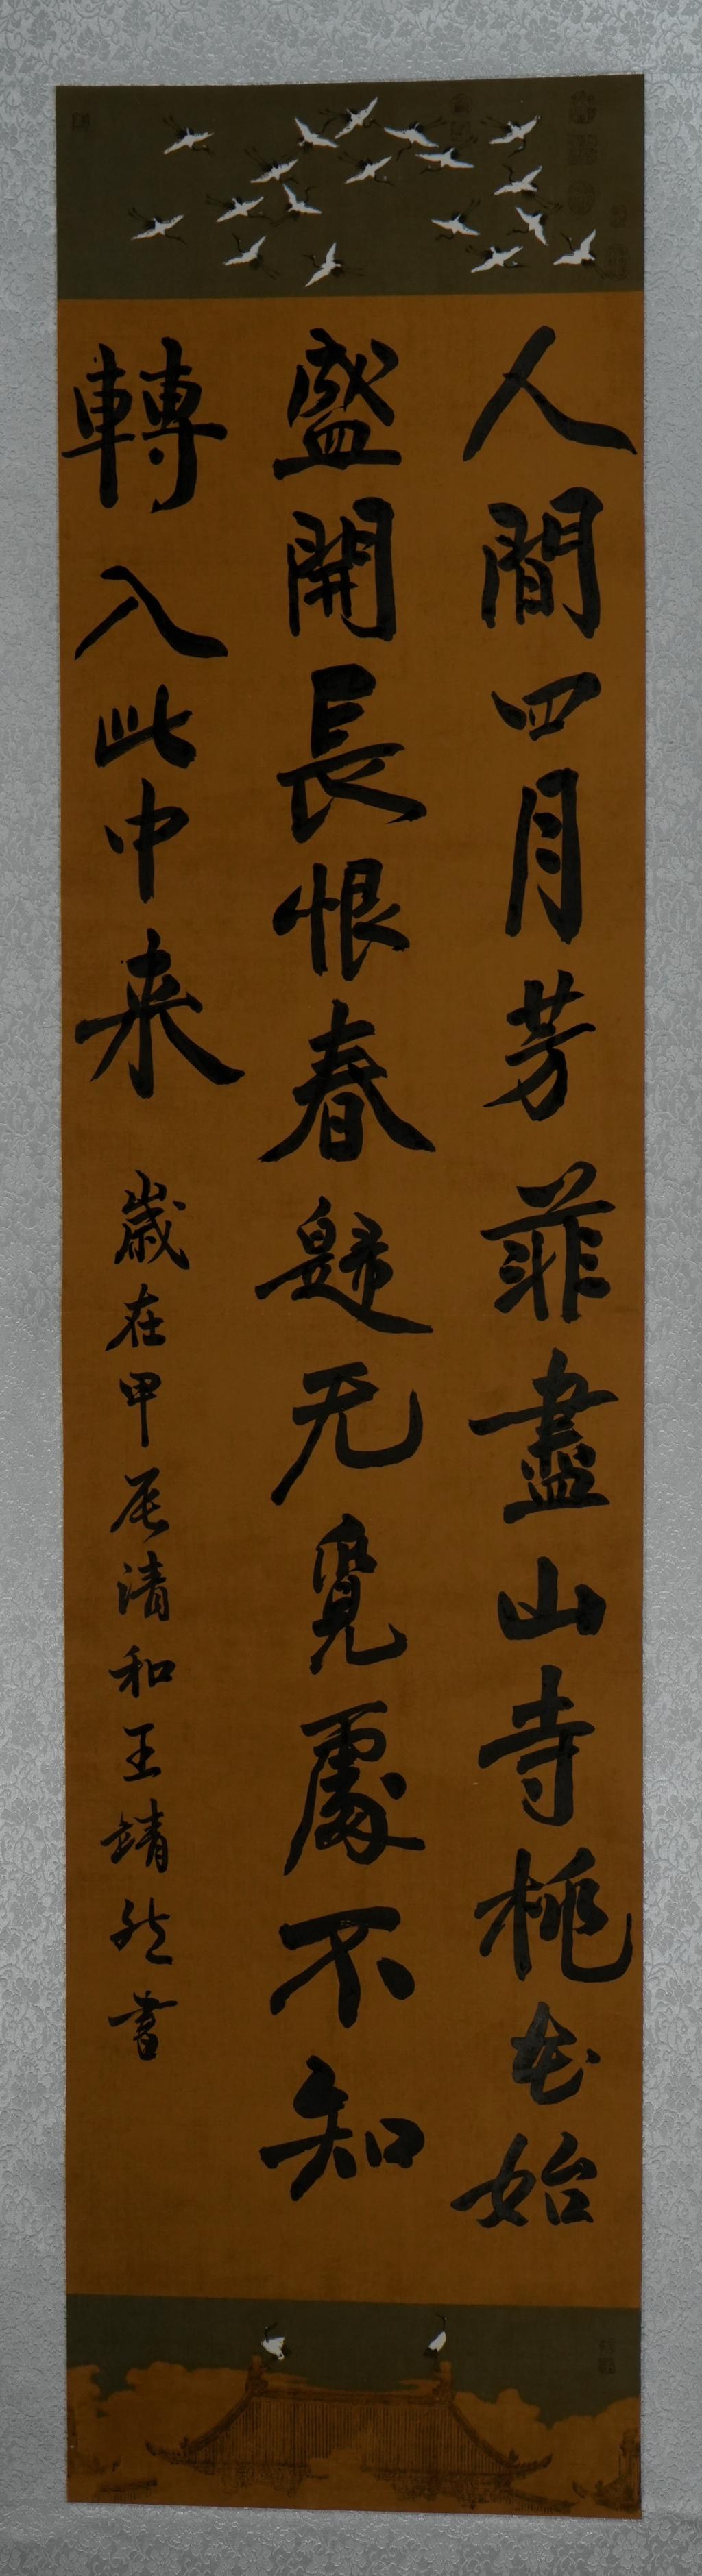 人間四月芳菲盡山寺桃花始
盛開長恨春歸无覓處不知
轉入此中来
歳在甲辰清和王靖然書